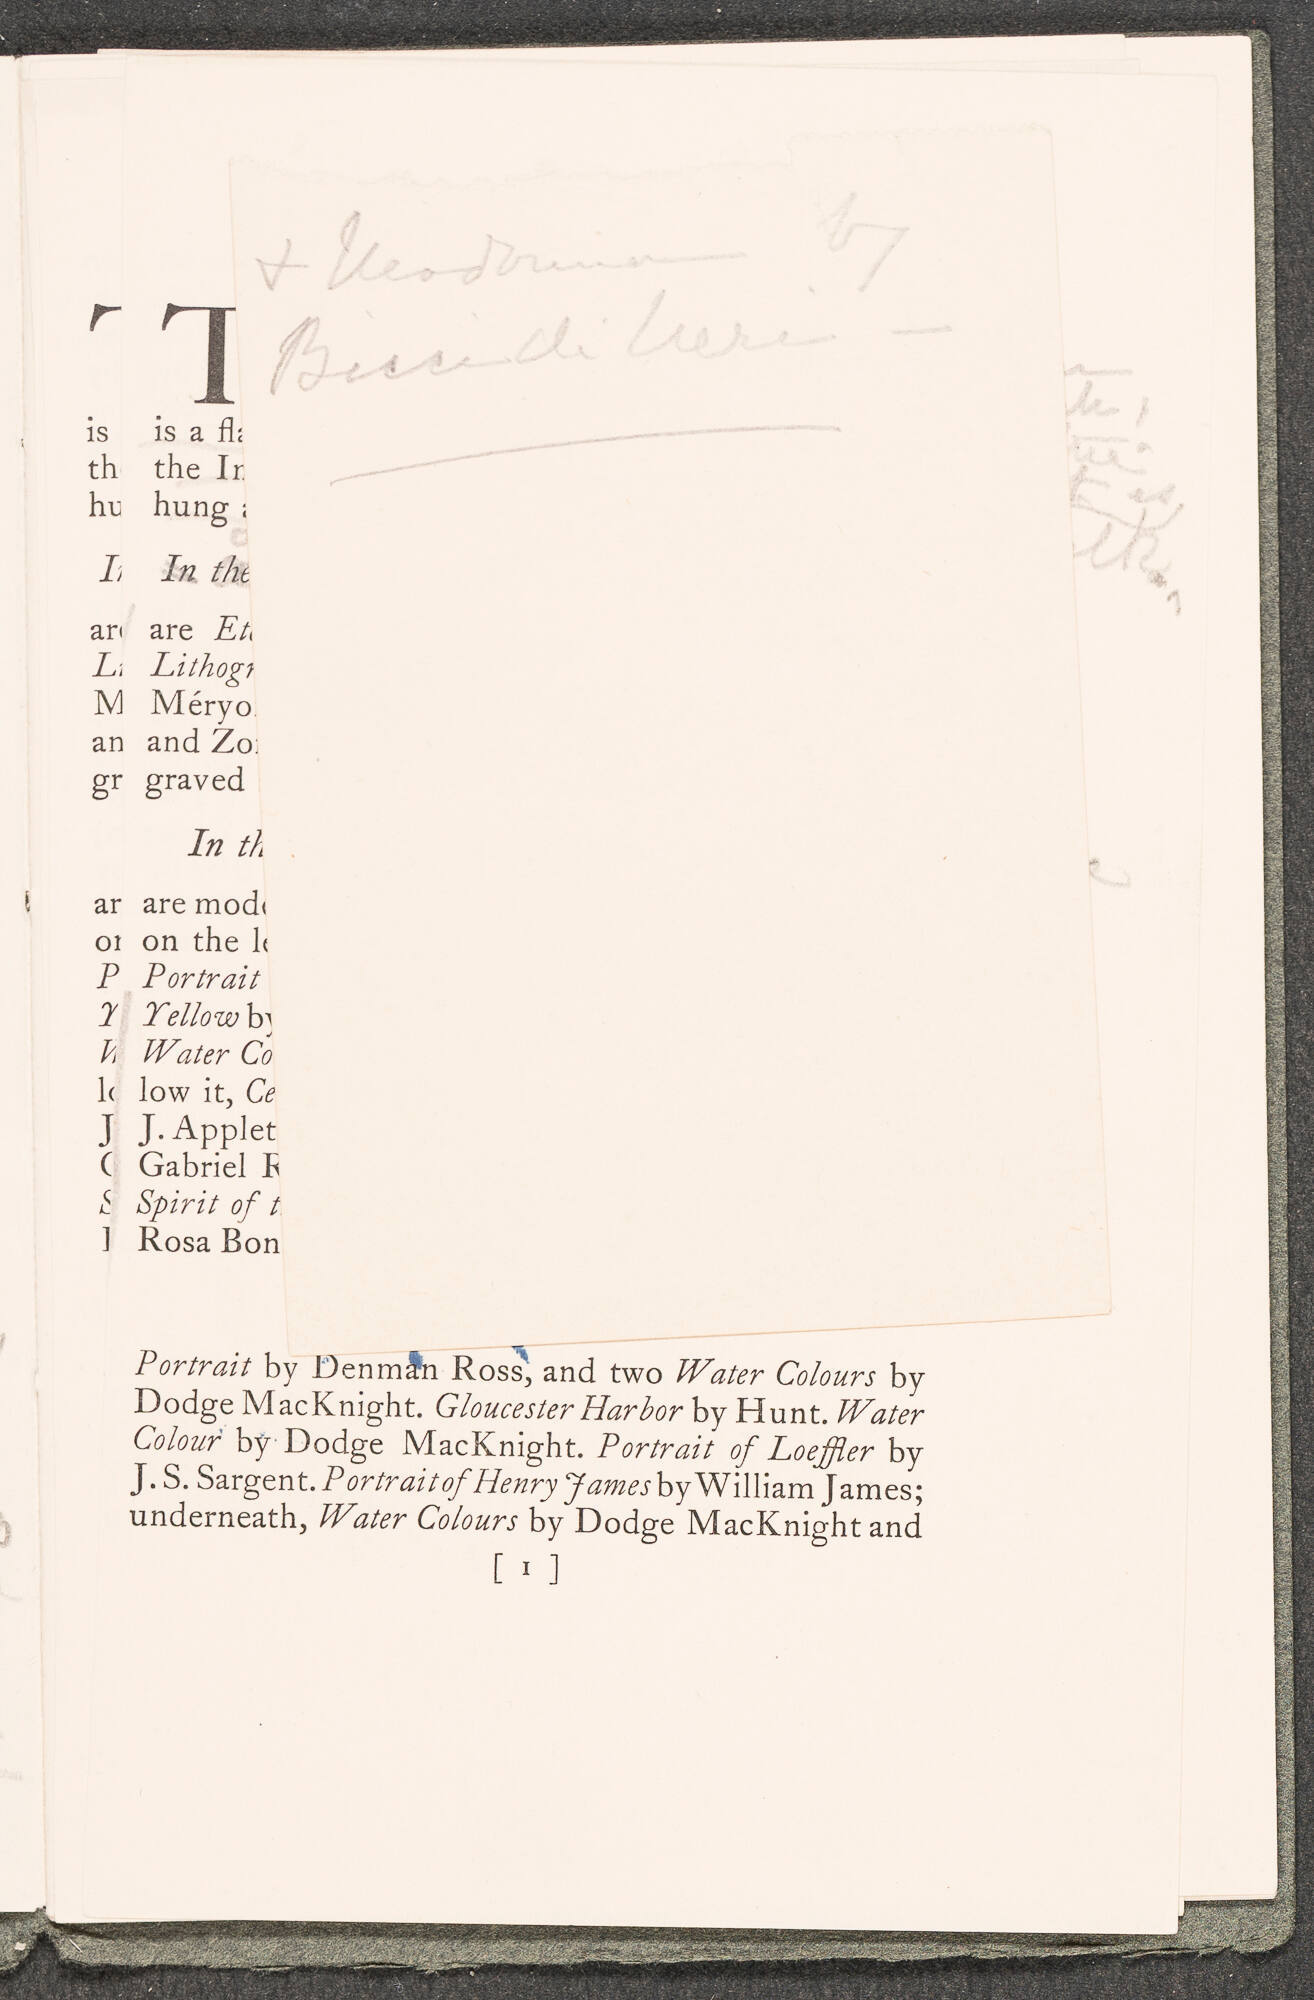 + Madonna by
Bicci di Neri —
T
is a fla
the In
hung a
In the
are Etc
Lithogr
Méryo
and Zor
graved
In th
are mode
on the le
Portrait
Yellow by
Water Co
low it, Ce
J. Applet
Gabriel R
Spirit of t
Rosa Bon
Portrait by Denman Ross, and two Water Colours by
Dodge MacKnight. Gloucester Harbor by Hunt. Water
Colour by Dodge MacKnight. Portrait of Loeffler by
J. S. Sargent. Portrait of Henry James by William James;
underneath, Water Colours by Dodge MacKnight and
[ 1 ]